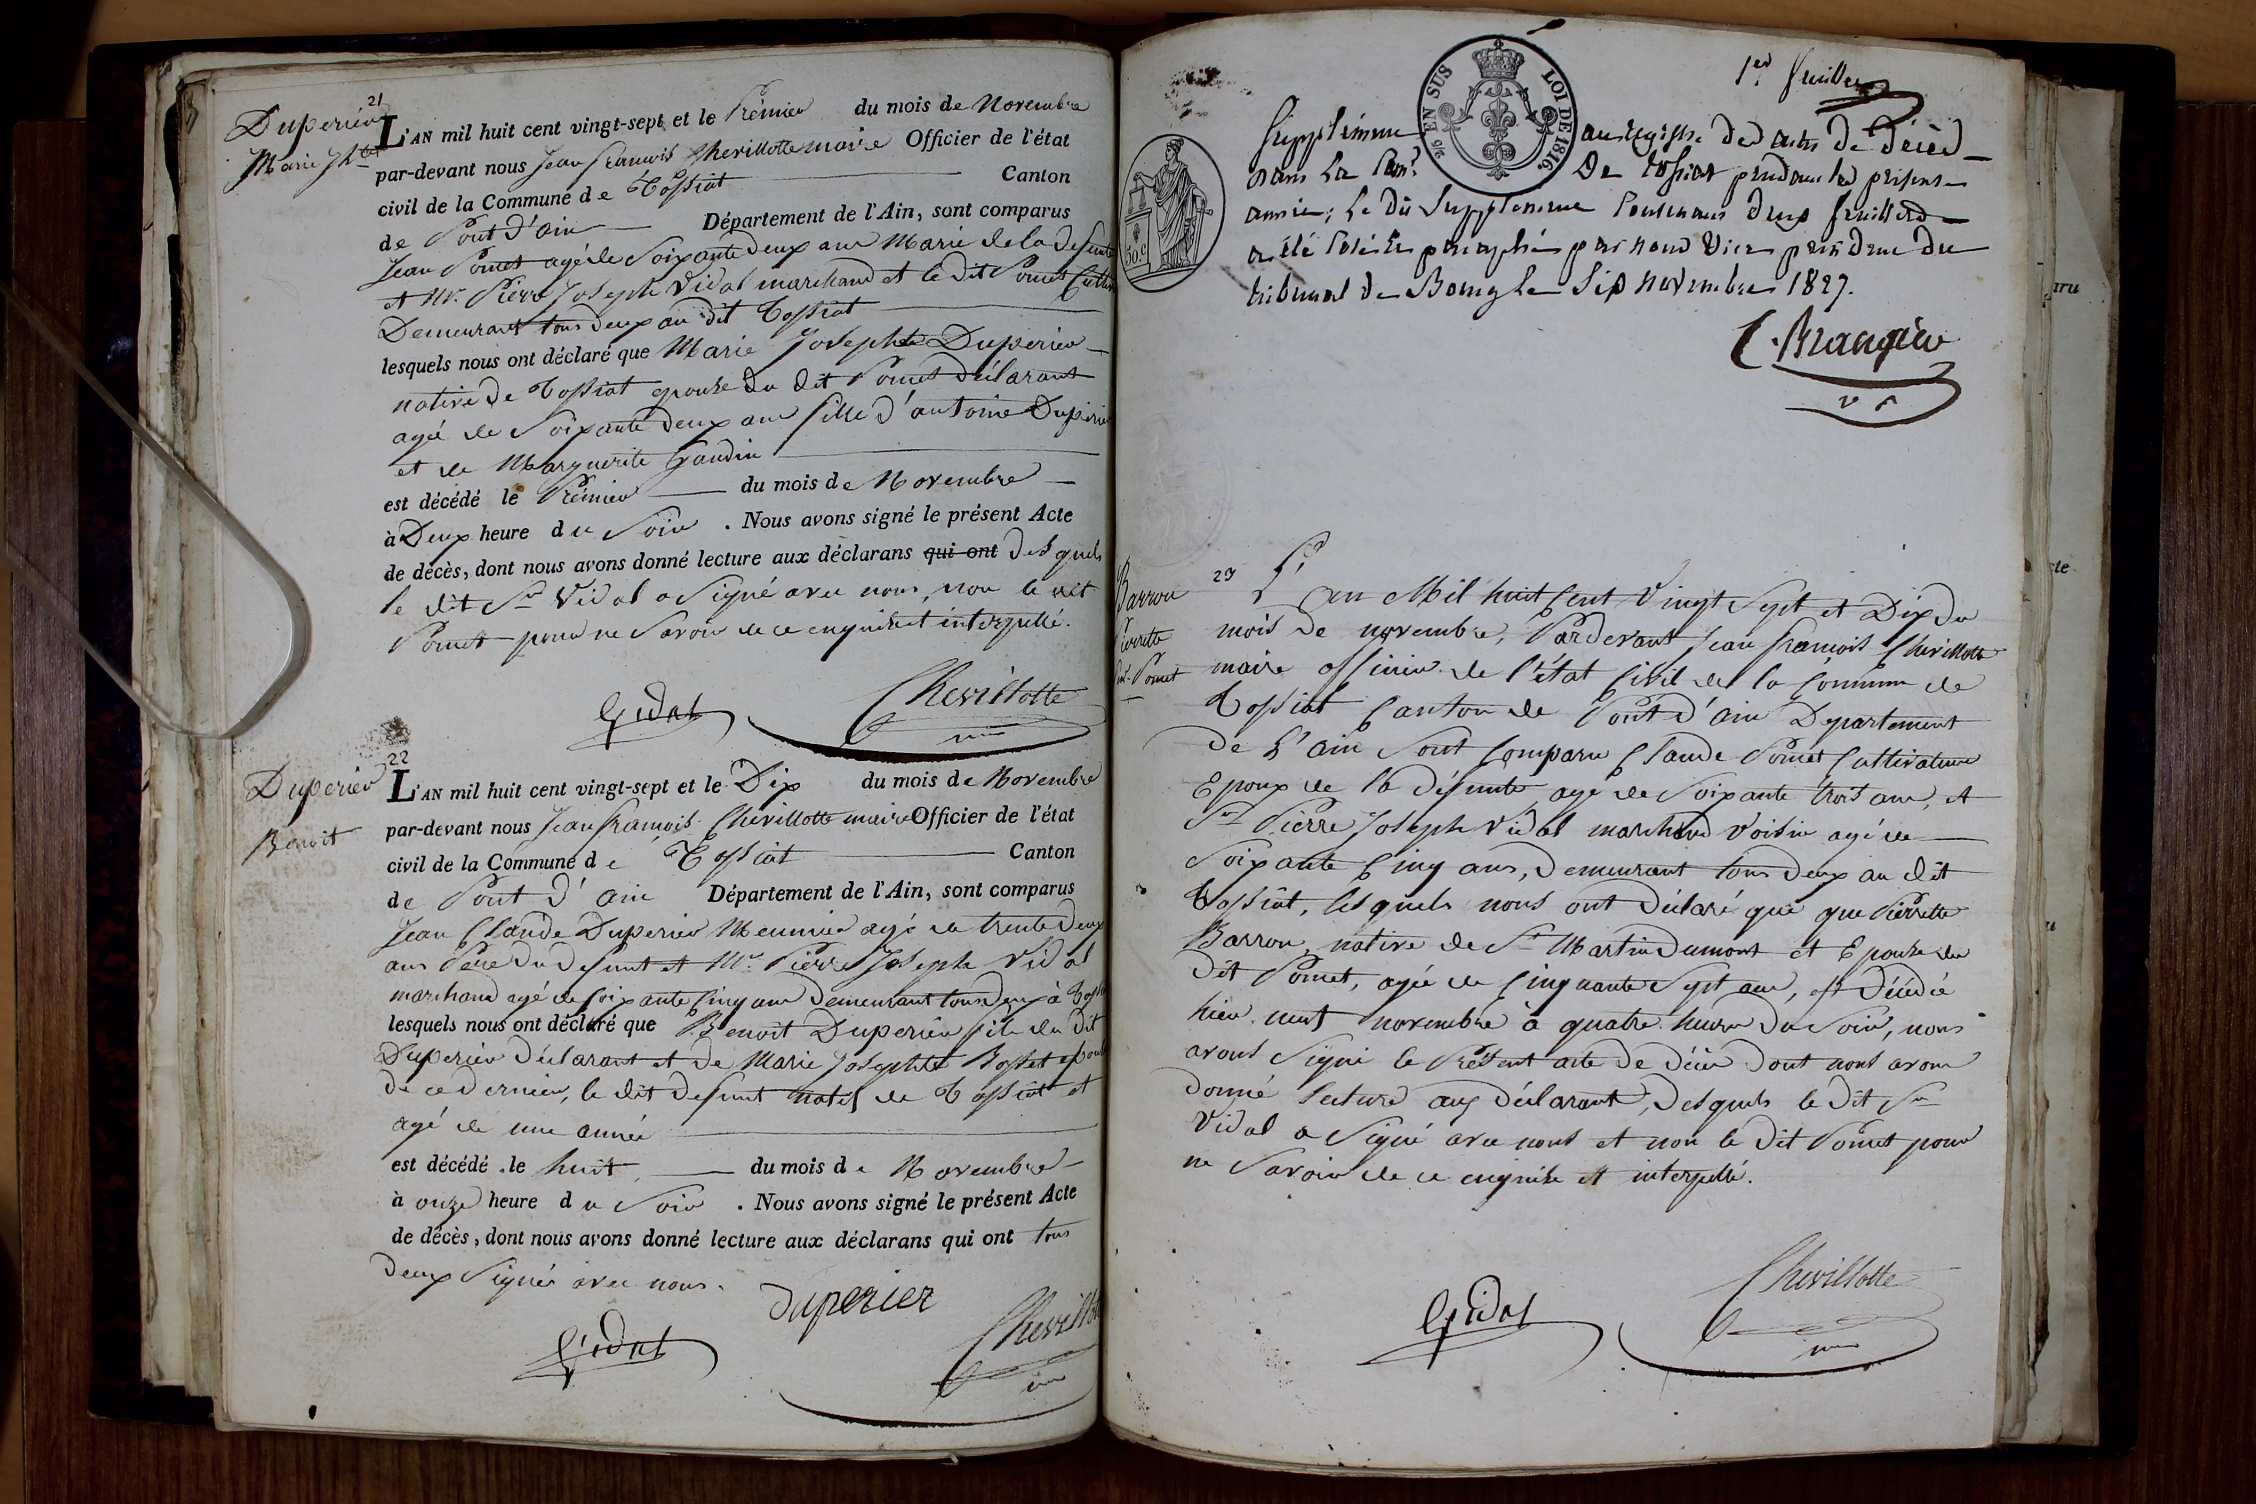 21
Duperier
Marie Jhte
L'AN mil huit cent vingt-sept et le Prémier du mois de Novembre
par-devant nous Jean francois Chevillotte maire Officier de l'état
civil de la Commune de Tossiat Canton
de Pont d'ain Département de l'Ain, sont comparus
Jean Pomet agé de Soixante deux ans Marié de la defunte
et Mr. Pierre Joseph Vidal marchand et le dit Pomet Cultiv
Demeurant tous deux au dit Tossiat
lesquels nous ont déclaré que Marie Josephte Duperier
native de Tossiat epouse du dit Pomet déclarant
agée de Soixante deux ans fille d'antoine Duperier
et de Marguerite Gaudin
est décédé le Prémier du mois de Novembre
à Deux heure du Soir. Nous avons signé le présent Acte
de décès, dont nous avons donné lecture aux déclarans qui ont Desquels
le dit Sr Vidal a Signé avec nous, non le dit
Pomet pour ne Savoir de ce enquis et interpellé.
Vidal Chevillotte
22
Duperier
Benoit
L'AN mil huit cent vingt-sept et le Dix du mois de Novembre
par-devant nous Jean francois Chevillotte maire Officier de l'état
civil de la Commune de Tossiat Canton
de Pont d'ain Département de l'Ain, sont comparus
Jean Claude Duperier Meunier agé de trente deux
ans Père du defunt et Mr. Pierre Joseph Vidal
marchand agé de Soixante Cinq ans demeurant tous deux à Toss
lesquels nous ont déclaré que Benoit Duperier fils du dit
Duperier déclarant et de Marie Josephte Bosset epouse
de ce dernier, le dit defunt natif de Tossiat et
agé de une année
est décédé le huit du mois de Novembre
à onze heure du Soir. Nous avons signé le présent Acte
de décès, dont nous avons donné lecture aux déclarans qui ont tous
deux Signés avec nous.
duperier
Vidal Chevillotte
1er feuillet
EN SUS LOI DE 1816.
50.c
Supplément au registre des actes de Décès
dans la Com.e De tossiat pendant la présente
année; le dit Supplément Contenant deux feuillets
a été coté et paraphé par nous Vice président du
tribunal de Bourg le Six novembre 1827.
C. Brangier
v p
23
Barron
Pierrette
Pomet
L'an Mil huit Cent Vingt Sept et Dix du
mois de novembre, Pardevant Jean francois Chevillotte
maire officier de l'état Civil de la Commune de
Tossiat Canton de Pont d'ain Departement
de L'ain Sont Comparu Claude Pomet Cultivateur
Epoux de la défunte, agé de Soixante trois ans, et
Sr Pierre Joseph Vidal marchand Voisin agé de
Soixante Cinq ans, Demeurant tous deux au dit
Tossiat, lesquels nous ont Déclaré que que Pierrette
Barron, native de St Martin Dumont et Epouse du
dit Pomet, agée de Cinquante Sept ans, est Décédée
hier neuf novembre à quatre heure du Soir, nous
avons Signé le Présent acte de décès dont nous avons
donné lecture aux Déclarant, Desquels le dit Sr
Vidal a Signé avec nous et non le dit Pomet pour
ne Savoir de ce enquise et interpellé.
Vidal Chevillotte